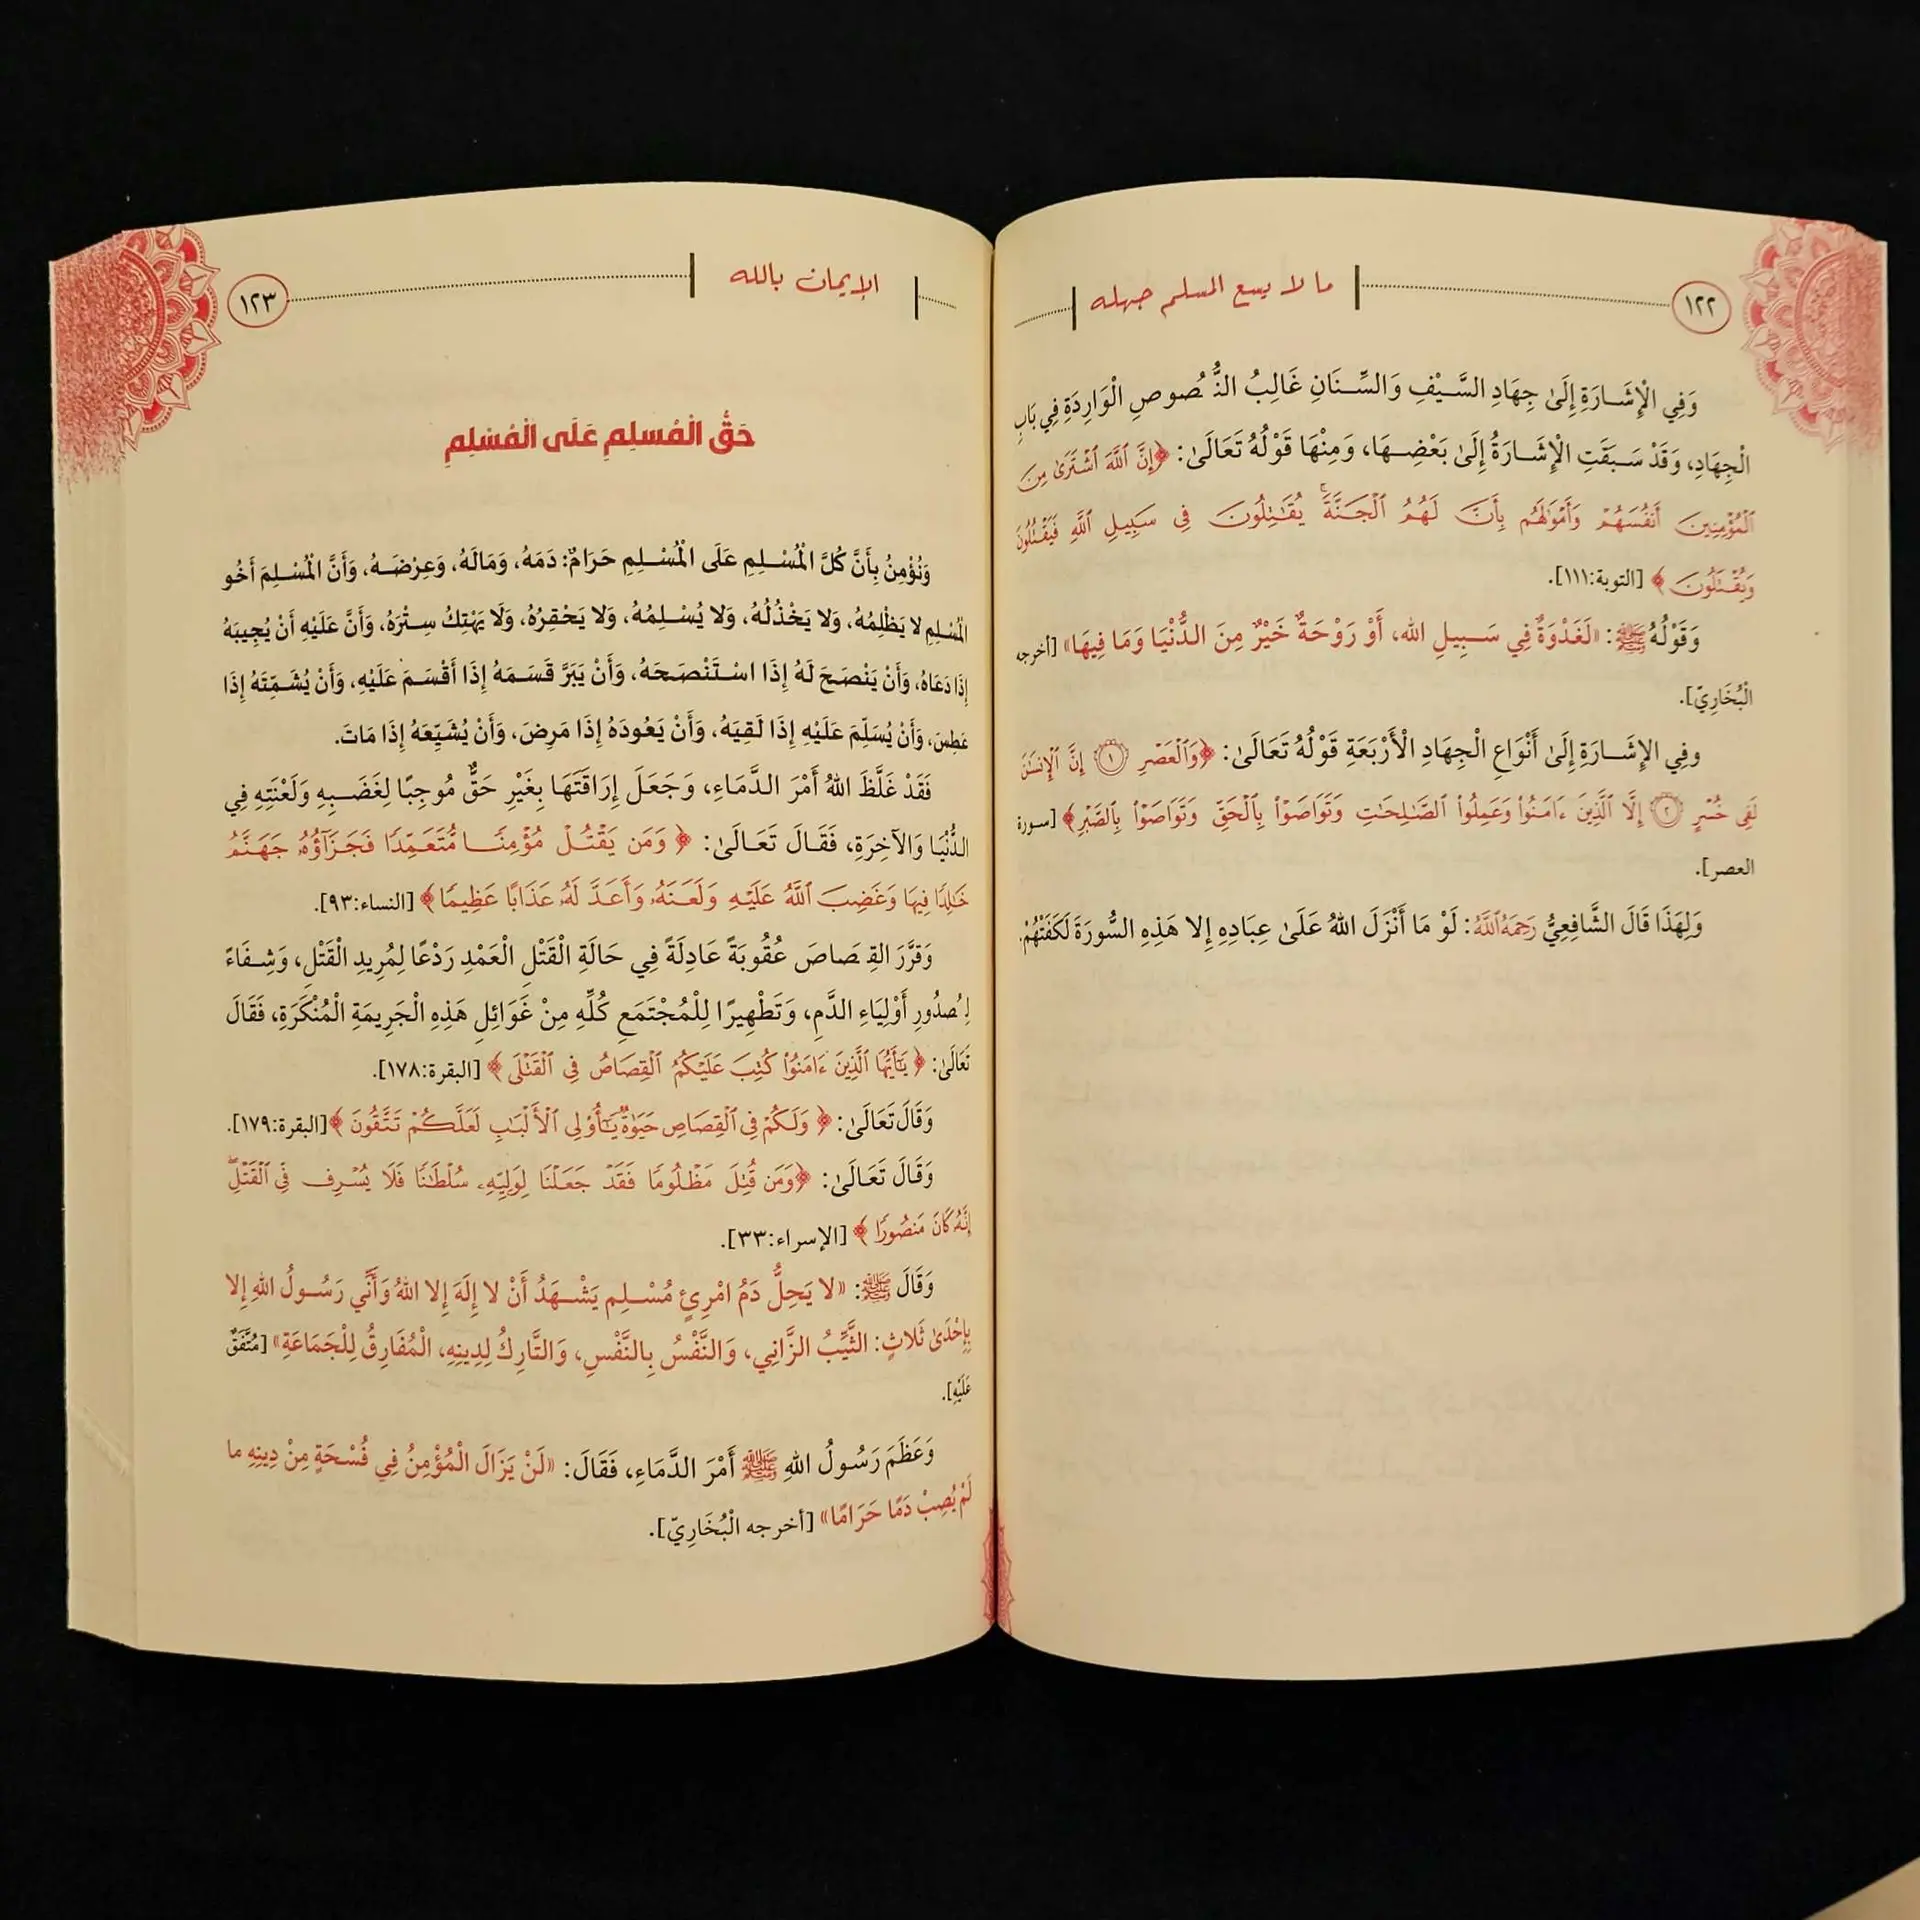 ١٢٢
ما لا يسع المسلم جهله
وَفِي الْإِشَارَةِ إِلَىٰ جِهَادِ السَّيْفِ وَالسِّنَانِ غَالِبُ النُّصُوصِ الْوَارِدَةِ فِي بَابِ
الْجِهَادِ، وَقَدْ سَبَقَتِ الْإِشَارَةُ إِلَىٰ بَعْضِهَا، وَمِنْهَا قَوْلُهُ تَعَالَىٰ: ﴿إِنَّ ٱللَّهَ ٱشْتَرَىٰ مِنَ
ٱلْمُؤْمِنِينَ أَنفُسَهُمْ وَأَمْوَٰلَهُم بِأَنَّ لَهُمُ ٱلْجَنَّةَ ۚ يُقَٰتِلُونَ فِى سَبِيلِ ٱللَّهِ فَيَقْتُلُونَ
وَيُقْتَلُونَ﴾ [التوبة:١١١].
وَقَوْلُهُ ﷺ: «لَغَدْوَةٌ فِي سَبِيلِ الله، أَوْ رَوْحَةٌ خَيْرٌ مِنَ الدُّنْيَا وَمَا فِيهَا» [أخرجه
الْبُخَارِيّ].
وفِي الإِشَارَةِ إِلَىٰ أَنْوَاعِ الْجِهَادِ الْأَرْبَعَةِ قَوْلُهُ تَعَالَىٰ: ﴿وَٱلْعَصْرِ ١ إِنَّ ٱلْإِنسَٰنَ
لَفِى خُسْرٍ ٢ إِلَّا ٱلَّذِينَ ءَامَنُوا۟ وَعَمِلُوا۟ ٱلصَّٰلِحَٰتِ وَتَوَاصَوْا۟ بِٱلْحَقِّ وَتَوَاصَوْا۟ بِٱلصَّبْرِ﴾ [سورة
العصر].
وَلِهَذَا قَالَ الشَّافِعِيُّ رَحِمَهُ ٱللَّهُ: لَوْ مَا أَنْزَلَ اللهُ عَلَىٰ عِبَادِهِ إِلا هَذِهِ السُّورَةَ لَكَفَتْهُمْ.
الإيمان بالله
١٢٣
حَقُّ الْمُسلِمِ عَلَى الْمُسْلِمِ
وَنُؤْمِنُ بِأَنَّ كُلَّ الْمُسْلِمِ عَلَى الْمُسْلِمِ حَرَامٌ: دَمَهُ، وَمَالَهُ، وَعِرْضَهُ، وَأَنَّ الْمُسْلِمَ أَخُو
الْمُسْلِمِ لا يَظْلِمُهُ، وَلا يَخْذُلُهُ، وَلا يُسْلِمُهُ، وَلا يَحْقِرُهُ، وَلَا يَهْتِكُ سِتْرَهُ، وَأَنَّ عَلَيْهِ أَنْ يُجِيبَهُ
إِذَا دَعَاهُ، وَأَنْ يَنْصَحَ لَهُ إِذَا اسْتَنْصَحَهُ، وَأَنْ يَبَرَّ قَسَمَهُ إِذَا أَقْسَمَ عَلَيْهِ، وَأَنْ يُشَمِّتَهُ إِذَا
عَطِسَ، وَأَنْ يُسَلِّمَ عَلَيْهِ إِذَا لَقِيَهُ، وَأَنْ يَعُودَهُ إِذَا مَرِضَ، وَأَنْ يُشَيِّعَهُ إِذَا مَاتَ.
فَقَدْ غَلَّظَ اللهُ أَمْرَ الدَّمَاءِ، وَجَعَلَ إِرَاقَتَهَا بِغَيْرِ حَقٍّ مُوجِبًا لِغَضَبِهِ وَلَعْنَتِهِ فِي
الدُّنْيَا وَالآخِرَةِ، فَقَالَ تَعَالَىٰ: ﴿وَمَن يَقْتُلْ مُؤْمِنًا مُّتَعَمِّدًا فَجَزَآؤُهُۥ جَهَنَّمُ
خَٰلِدًا فِيهَا وَغَضِبَ ٱللَّهُ عَلَيْهِ وَلَعَنَهُۥ وَأَعَدَّ لَهُۥ عَذَابًا عَظِيمًا﴾ [النساء:٩٣].
وَقَرَّرَ القِصَاصَ عُقُوبَةً عَادِلَةً فِي حَالَةِ القَتْلِ الْعَمْدِ رَدْعًا لِمُرِيدِ القَتْلِ، وَشِفَاءً
لِصُدُورِ أَوْلِيَاءِ الدَّمِ، وَتَطْهِيرًا لِلْمُجْتَمَعِ كُلِّهِ مِنْ غَوَائِلِ هَذِهِ الْجَرِيمَةِ الْمُنْكَرَةِ، فَقَالَ
تَعَالَىٰ: ﴿يَٰٓأَيُّهَا ٱلَّذِينَ ءَامَنُوا۟ كُتِبَ عَلَيْكُمُ ٱلْقِصَاصُ فِى ٱلْقَتْلَى﴾ [البقرة:١٧٨].
وَقَالَ تَعَالَىٰ: ﴿وَلَكُمْ فِى ٱلْقِصَاصِ حَيَوٰةٌ يَٰٓأُو۟لِى ٱلْأَلْبَٰبِ لَعَلَّكُمْ تَتَّقُونَ﴾ [البقرة:١٧٩].
وَقَالَ تَعَالَىٰ: ﴿وَمَن قُتِلَ مَظْلُومًا فَقَدْ جَعَلْنَا لِوَلِيِّهِۦ سُلْطَٰنًا فَلَا يُسْرِف فِّى ٱلْقَتْلِ ۖ
إِنَّهُۥ كَانَ مَنصُورًا﴾ [الإسراء:٣٣].
وَقَالَ ﷺ: «لا يَحِلُّ دَمُ امْرِئٍ مُسْلِمٍ يَشْهَدُ أَنْ لا إِلَهَ إِلا اللهُ وَأَنِّي رَسُولُ اللهِ إِلا
بِإِحْدَىٰ ثَلاثٍ: الثَّيِّبُ الزَّانِي، وَالنَّفْسُ بِالنَّفْسِ، وَالتَّارِكُ لِدِينِهِ، الْمُفَارِقُ لِلْجَمَاعَةِ» [مُتَّفَقٌ
عَلَيْهِ].
وَعَظَمَ رَسُولُ اللهِ ﷺ أَمْرَ الدَّمَاءِ، فَقَالَ: «لَنْ يَزَالَ الْمُؤْمِنُ فِي فُسْحَةٍ مِنْ دِينِهِ ما
لَمْ يُصِبْ دَمًا حَرَامًا» [أخرجه الْبُخَارِيّ].